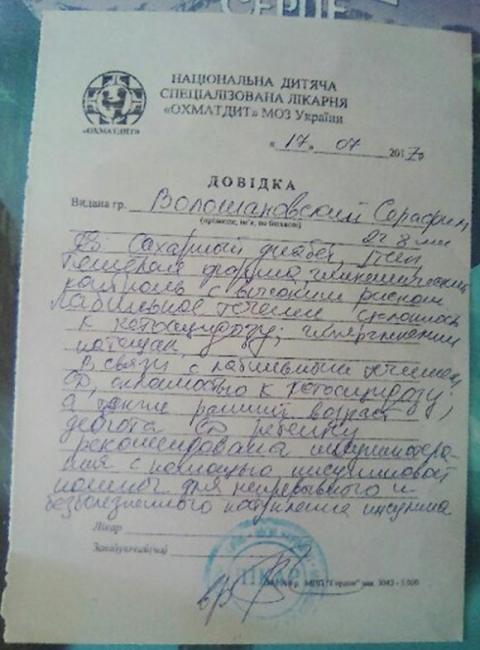 СЕРЦЕ
НАЦІОНАЛЬНА ДИТЯЧА
СПЕЦІАЛІЗОВАНА ЛІКАРНЯ
«ОХМАТДИТ» МОЗ України
«ОХМАТДИТ»
« 17 » 07 2017р
ДОВІДКА
Видана гр. Волошановский Серафим
(прізвище, ім'я, по батькові)
2г 8 мес
Ds Сахарный диабет, I тип
форма, гликемический
контроль с высоким риском
Лабильное течение склонность
к кетоацидозу; гипергликемии
натощак
В связи с лабильным течением
СД, склонностью к кетоацидозу;
а также ранний возраст
дебюта СД ребенку
рекомендована инсулинотера-
пия с помощью инсулиновой
помпы для непрерывного и
безболезненного поступления инсулина
Лікар
Завідуючий(ча)
МПП "Гердан" зам. 3042 - 5 000